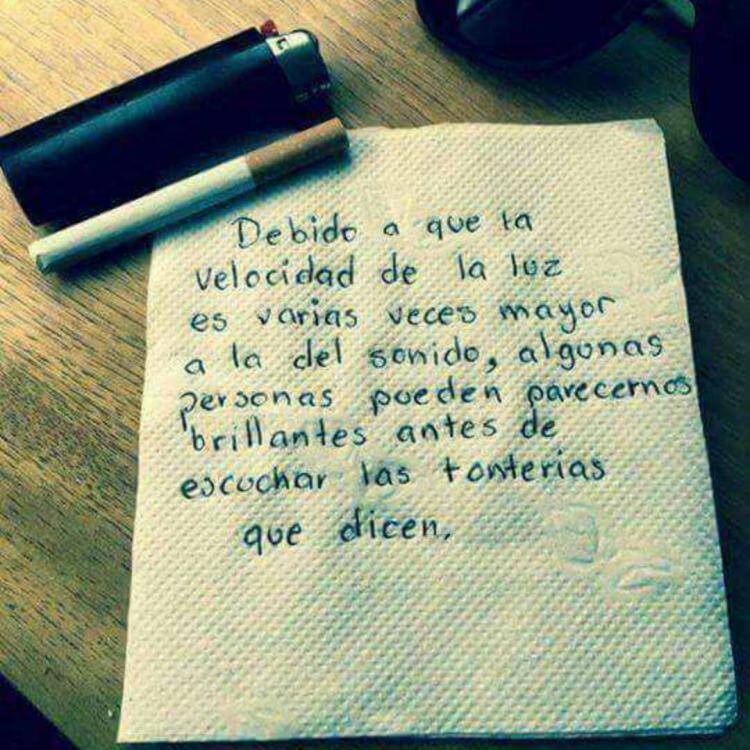 Debido a que la
velocidad de la luz
es varias veces mayor
a la del sonido, algunas
personas pueden parecernos
brillantes antes de
escuchar las tonterias
que dicen.